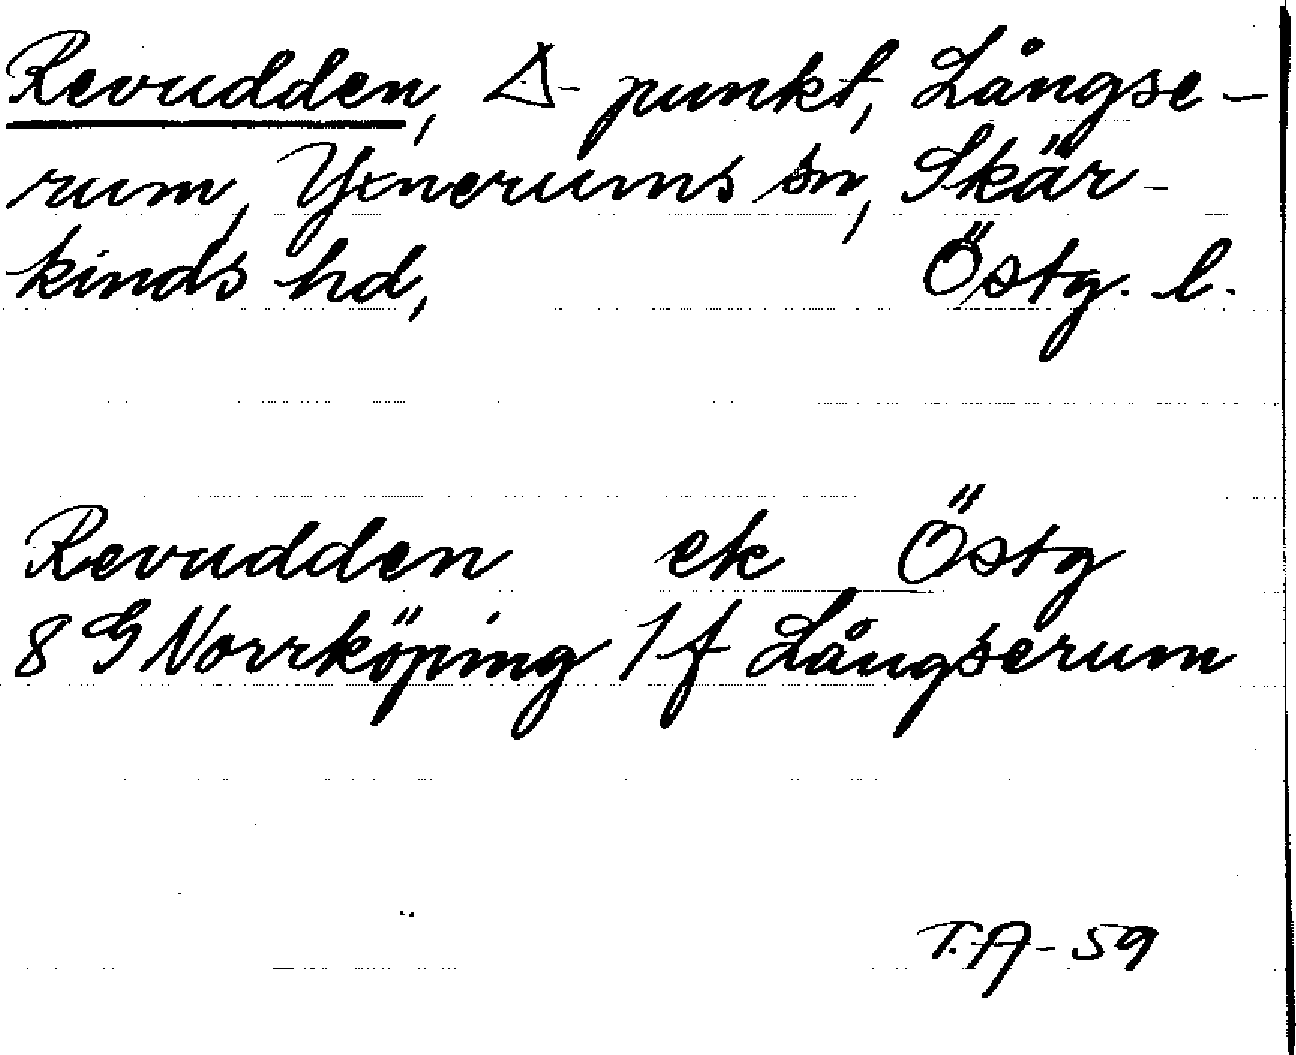 Revudden, △-punkt, Långse-
rum, Yxnerums sn, Skär-
kinds hd, Östg. l.
Revudden ek Östg
8 G Norrköping 1 f Långserum
T.A-59